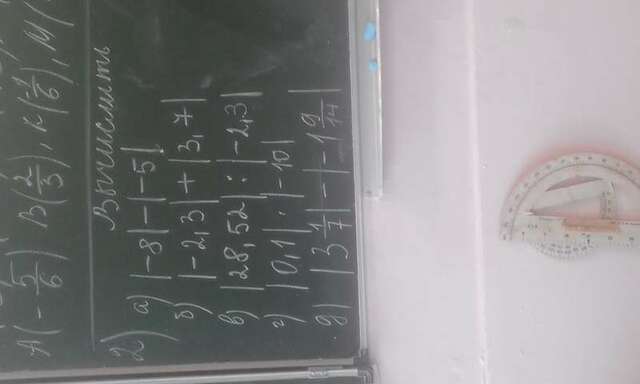 A(-5/6) B(2/3), K(-1/6), M(
Вычислить
2) а) |-8|-|-5|
б) |-2,3|+|3,7|
в) |28,52| : |-2,3|
г) |0,1| · |-10|
д) |3 1/7| - |-1 9/14|